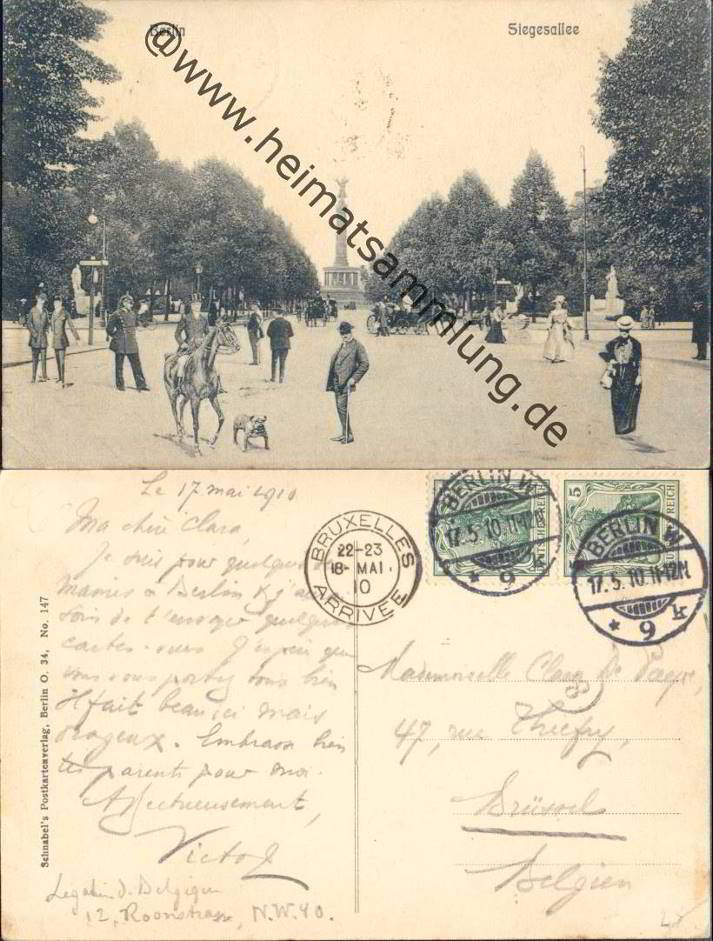 Berlin
Siegesallee
@www.heimatsammlung.de
Le 17 mai 1910
Ma chère Clara,
Je suis pour quelques se
maines à Berlin & j'au
soin de t'envoyer quelques
cartes-vues J'espère que
vous vous portez tous bien
Il fait beau ici mais
orageux. Embrasse bien
tes parents pour moi.
Affectueusement,
Victor
Legation d. Belgique
12, Roonstrasse, N.W. 40.
Schnabel's Postkartenverlag, Berlin O. 34, No. 147
BRUXELLES
22-23
18- MAI
10
ARRIVÉE
BERLIN W.
17.5.10.11-12N
* 9 k
5
DEUTSCHES REICH
BERLIN W
17.5.10.11-12N
* 9 k
Mademoiselle Clara De
47, rue Thiefry,
Brüssel
Belgien